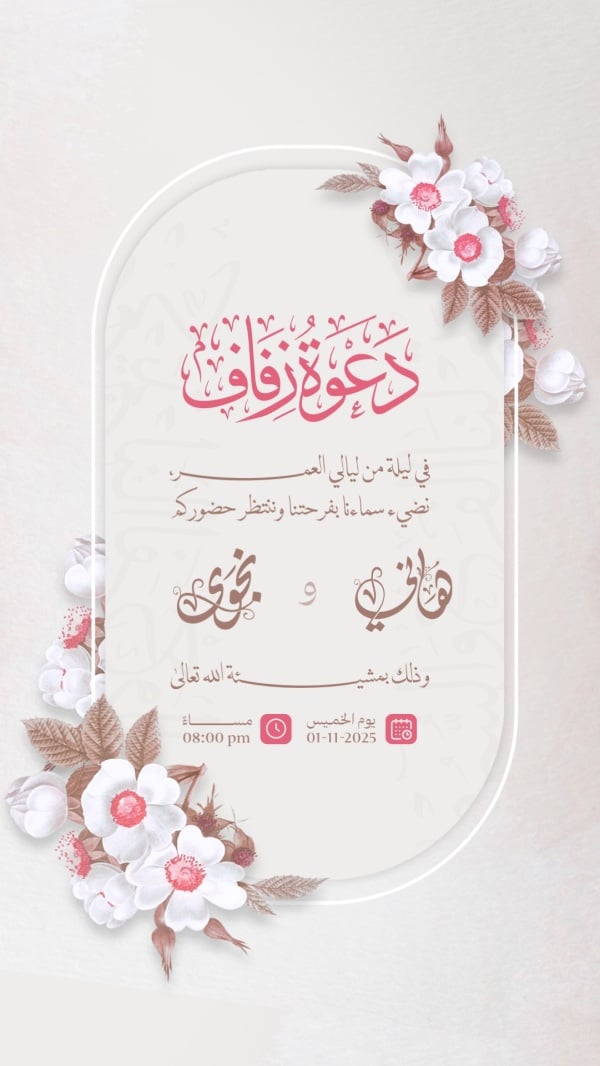 دَعْوَةُ زِفَاف
في ليلة من ليالي العمر،
نضيء سماءنا بفرحتنا وننتظر حضوركم
هاني و نجوى
وذلك بمشيئة الله تعالى
يوم الخميس مساءً
01-11-2025 08:00 pm